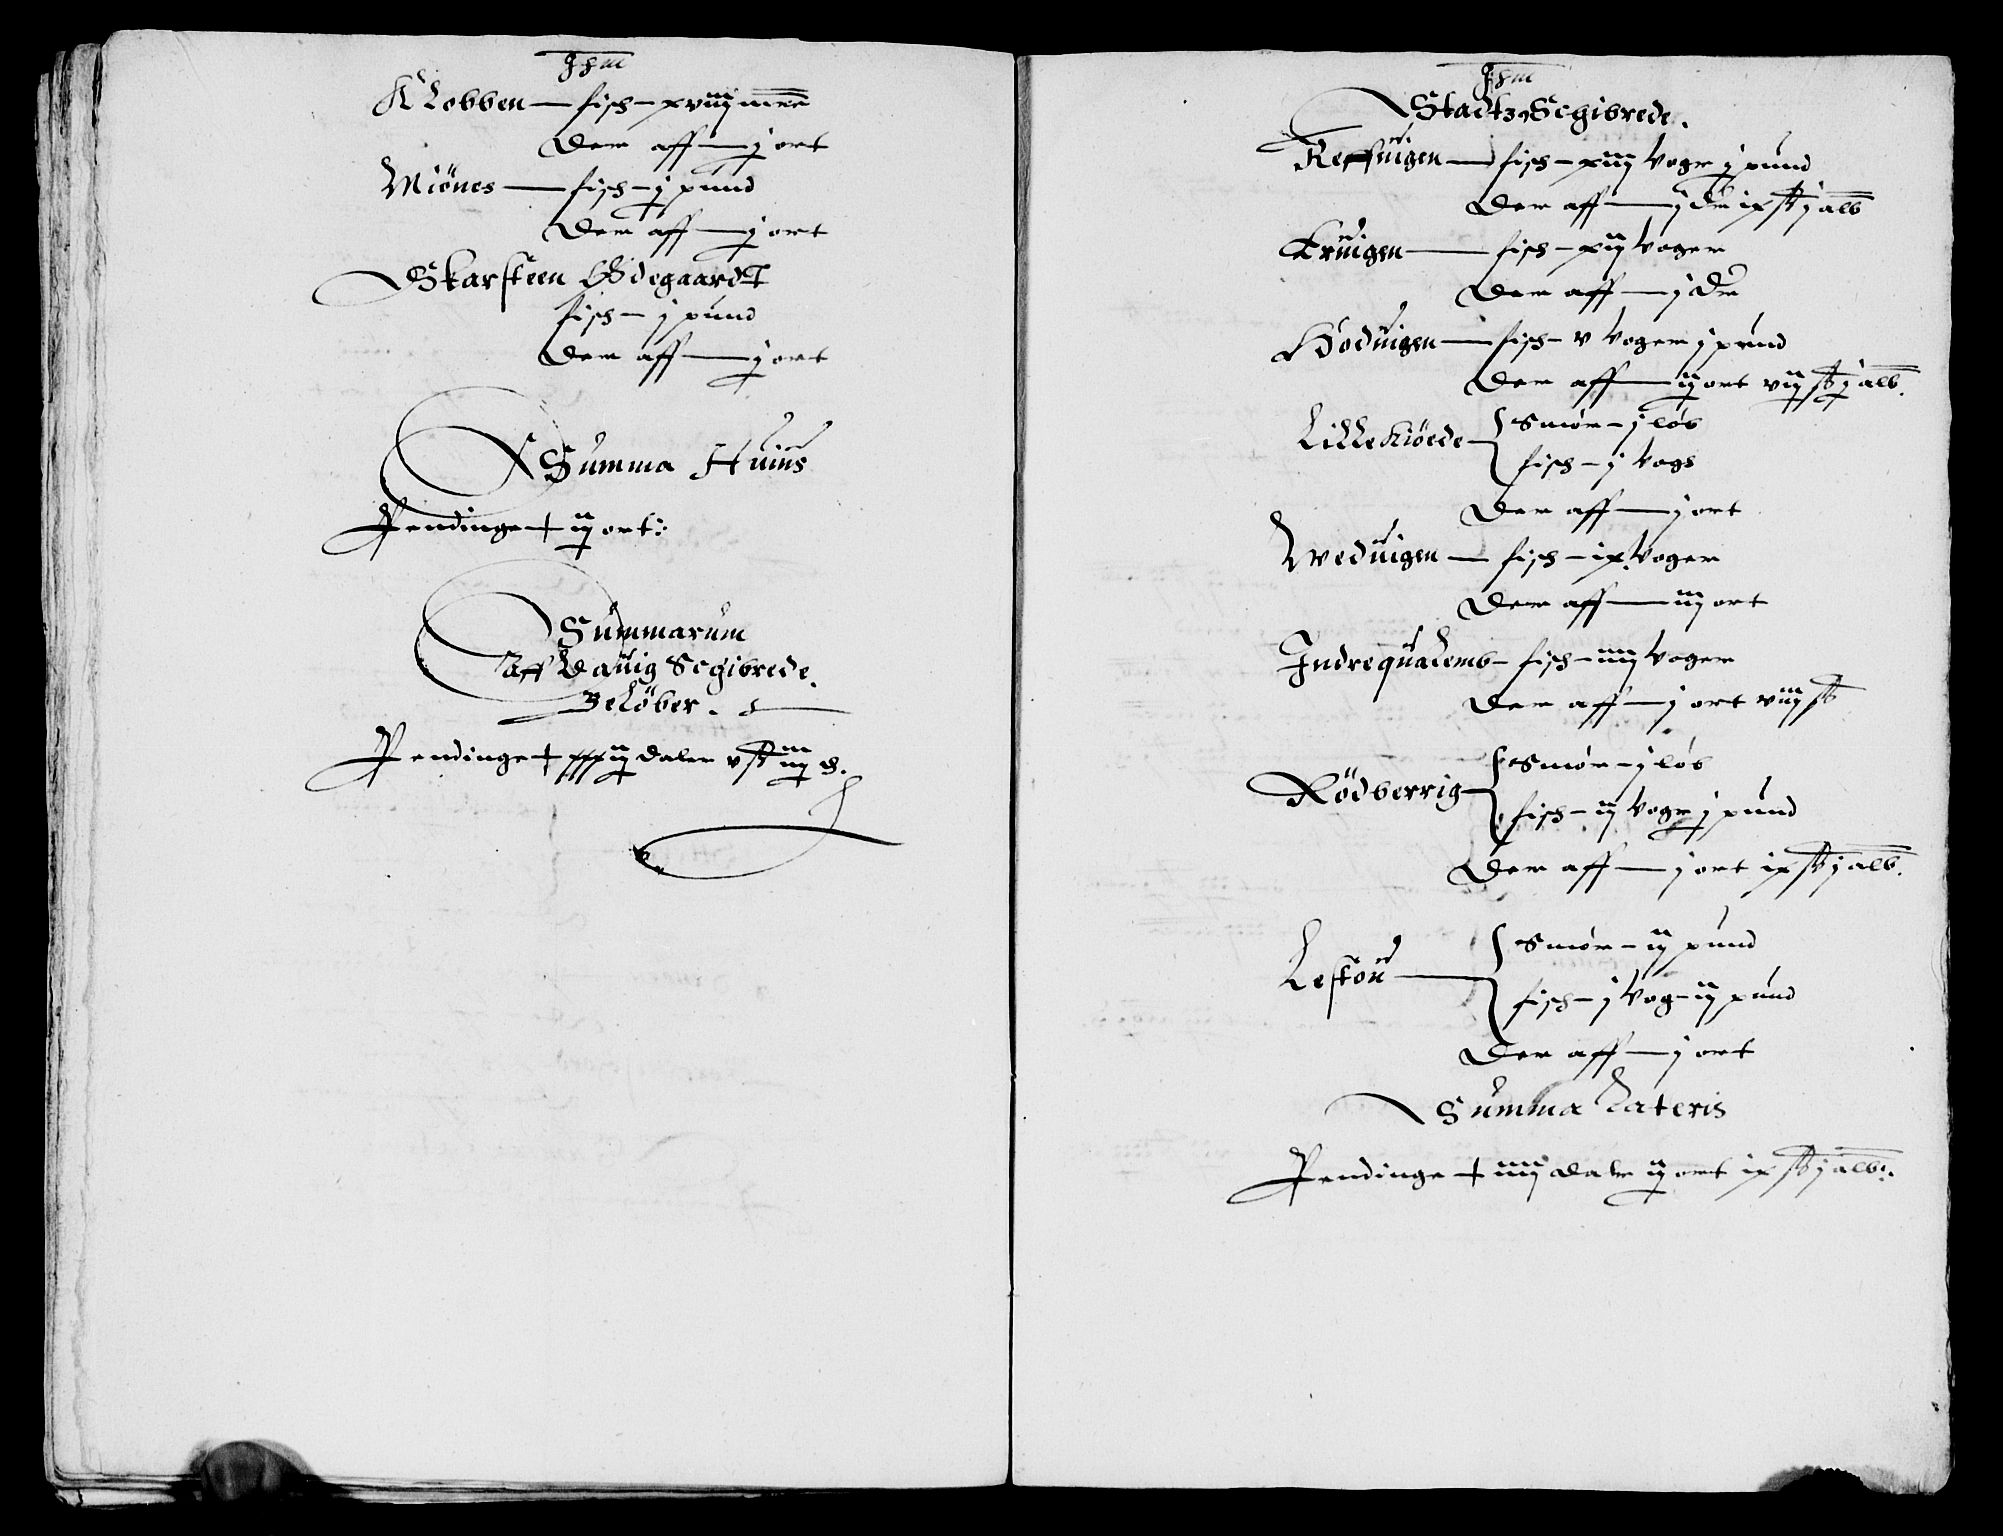 Ihm
Klobben — fisch – xviij mrc
Der aff — j ort
Miönes — fisch – j pund
Der aff — j ort
Skarsteen Ödegaardt
fisch – j pund
Der aff — j ort
Summa Huius
Pendinge + ij ort
Summarum
Aff Dauig Schibrede.
Belöber.
Pendinge + xxxij daler v sk iij d.
Ihm
Stadtz Schibrede.
Reffuigen — fisch – xiij Voger j pund
Der aff — j dr ix sk j alb
Eruigen — fisch – xij Voger
Der aff — j dr
Hoduigen — fisch – v Voger j pund
Der aff — ij ort vij sk j alb.
Lille Kiöede { Smör – j löb
fisch – j Vogh
Der aff — j ort
Weduigen — fisch – ix Voger
Der aff — iij ort
Indrequalemb – fisch – iiij Voger
Der aff — j ort viij sk
Rödberrig { Smör – j löb
fisch – ij Voger j pund
Der aff — j ort ix sk j alb.
Lestou { Smör – ij pund
fisch – j Vog – ij pund
Der aff — j ort
Summa Lateris
Pendinge + iiij daler ij ort ix sk j alb.